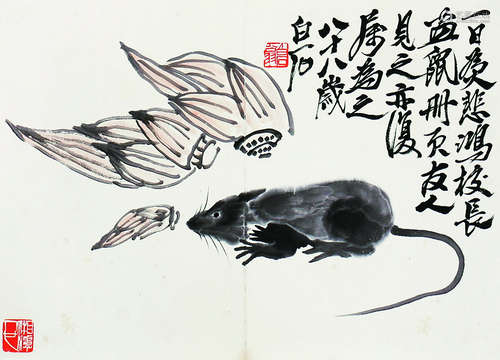 一日為悲鴻校長
畫鼠冊頁友人
見之亦復
屬為之
八十八歲
白石